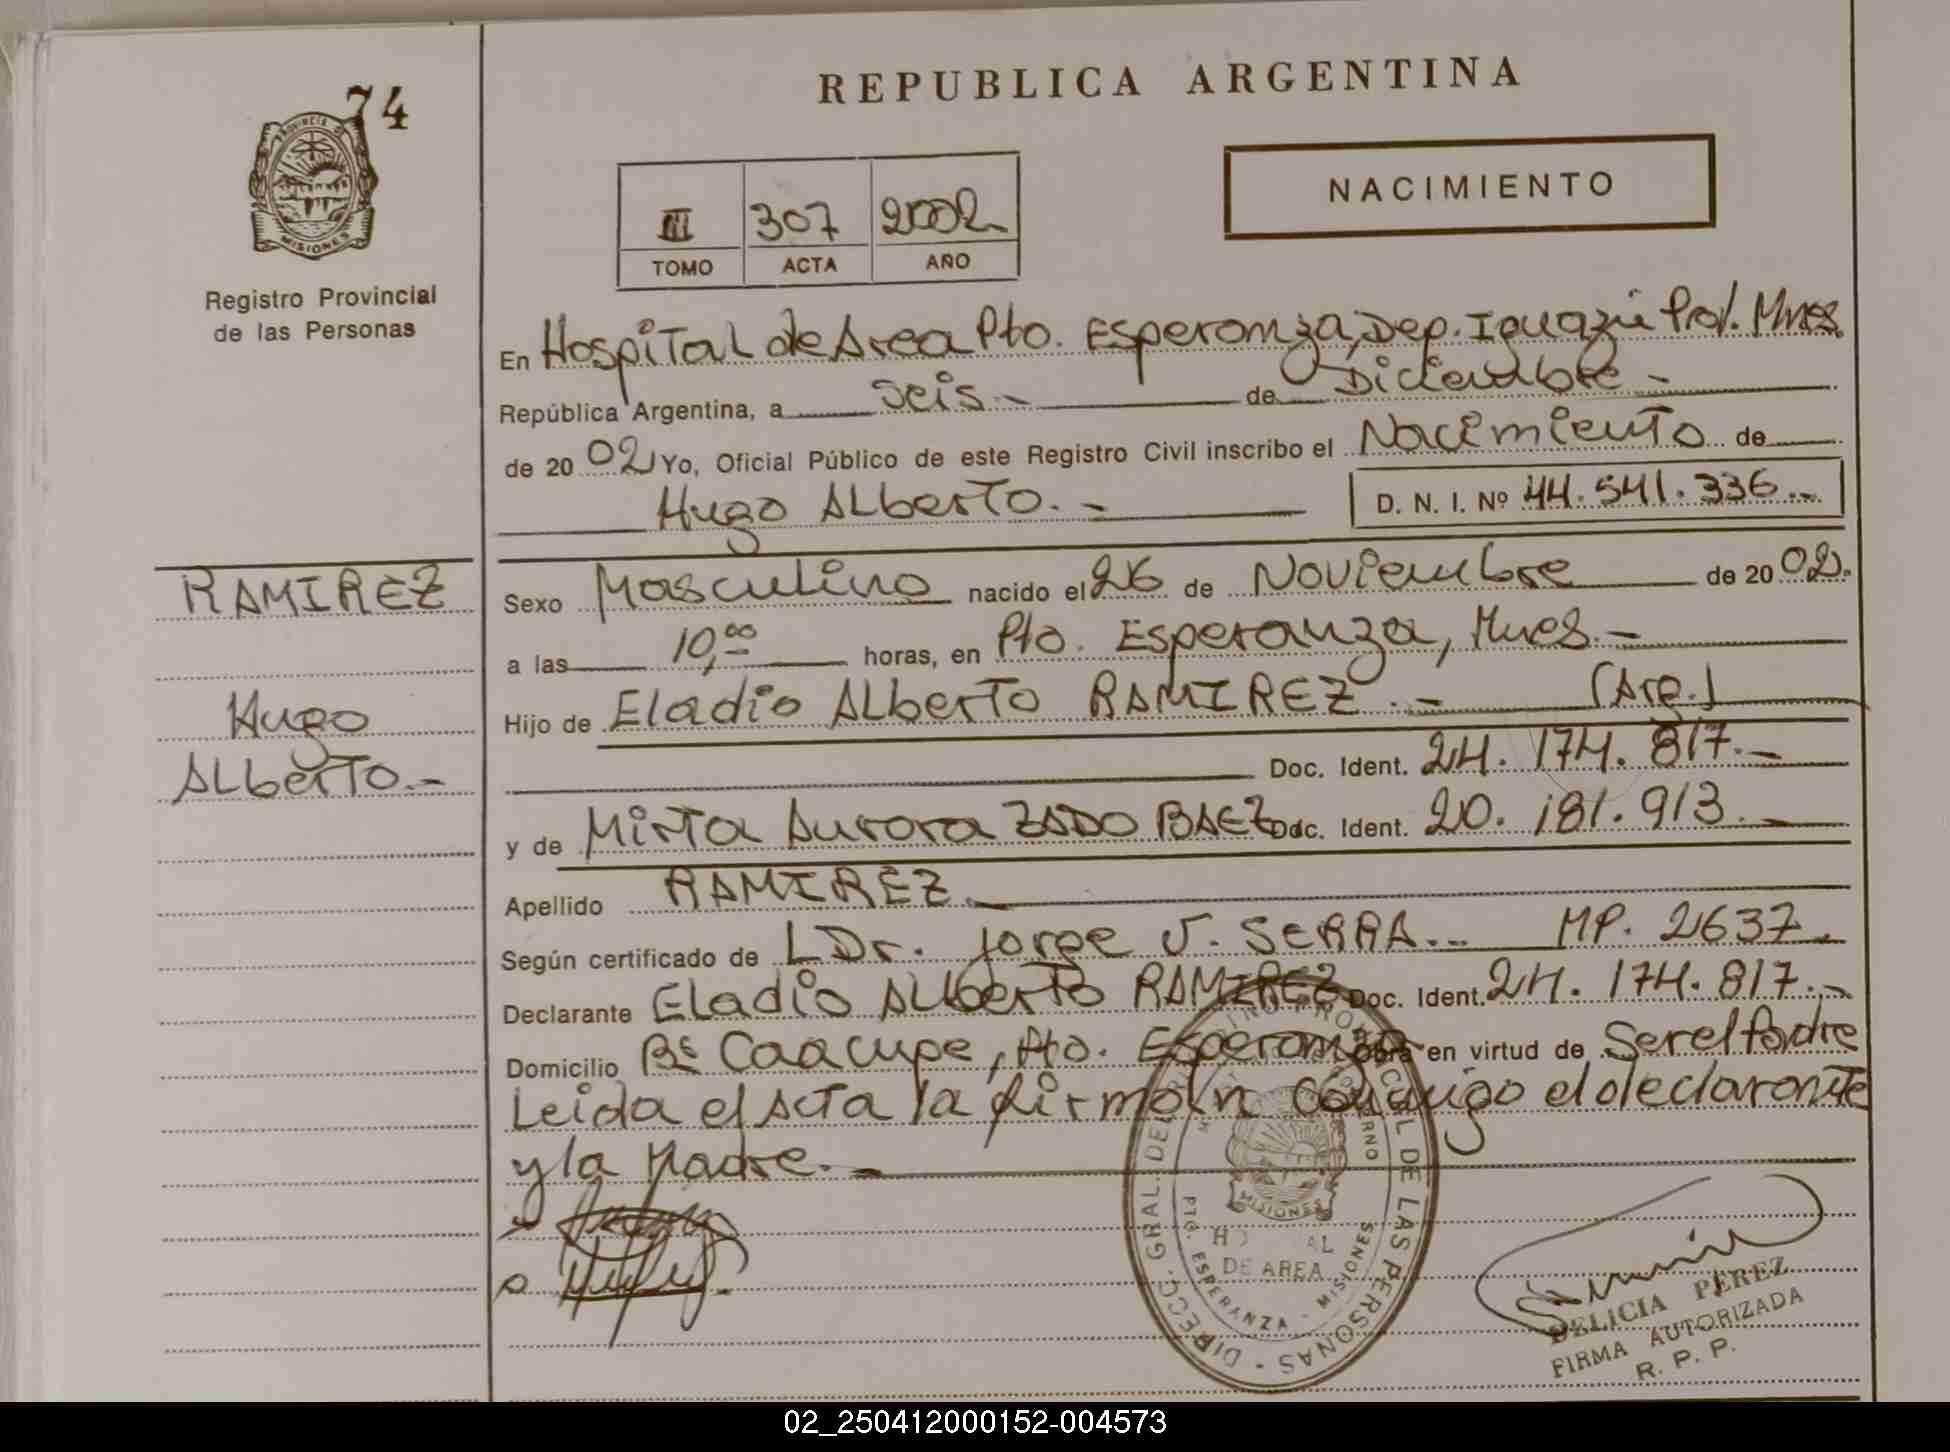 74
REPUBLICA ARGENTINA
PROVINCIA DE
MISIONES
Registro Provincial
de las Personas
NACIMIENTO
III 307 2002
TOMO ACTA AÑO
En Hospital de Area Pto. Esperanza, Dep. Iguazú Prov. Mnes.
República Argentina, a seis.- de Diciembre-
de 20 02 Yo, Oficial Público de este Registro Civil inscribo el Nacimiento de
Hugo Alberto.- D. N. I. Nº 44.541.336.-
RAMIREZ
Hugo
Alberto.-
Sexo Masculino nacido el 26 de Noviembre de 20 02.
a las 10,00 horas, en Pto. Esperanza, Mnes.-
Hijo de Eladio Alberto RAMIREZ.- (Arg.)
Doc. Ident. 24.174.817.-
y de Mirta Aurora ZADO BAEZ Doc. Ident. 20.181.913.-
Apellido RAMIREZ.
Según certificado de Dr. Jorge J. SERRA.- MP. 2637.
Declarante Eladio Alberto RAMIREZ Doc. Ident. 24.174.817.-
Domicilio Bº Caacupe, Pto. Esperanza Obra en virtud de Ser el Padre
Leida el Acta la firman conmigo el declarante
y la Madre.-
DIRECC. GRAL. DEL REGISTRO PROVINCIAL DE LAS PERSONAS
MISIONES
DE AREA
PTO. ESPERANZA - MISIONES
DELICIA PEREZ
FIRMA AUTORIZADA
R. P. P.
02_250412000152-004573